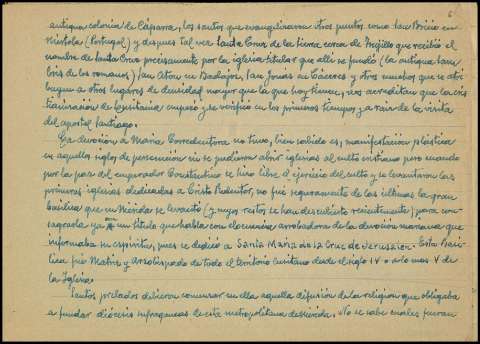 6
antigua colonia de Cáparra, los santos que evangelizaron otros puntos como San Bricio en
Mértola (Portugal) y despues tal vez Santa Cruz de la Sierra cerca de Trujillo que recibió el
nombre de Santa Cruz precisamente por la iglesia titular que alli se fundó (la antigua
de los romanos) San Aton en Badajoz, San Jonás en Cáceres y otros muchos que se atri
buyen a otros lugares de densidad mayor que la que hoy tienen, nos acreditan que la cris
tianización de Lusitania empezó y se verificó en los primeros tiempos y a raiz de la visita
del apostol Santiago.
La devoción a Maria Corredentora no tuvo, bien sabido es, manifestación plástica
en aquellos siglos de persecución ni se pudieron abrir iglesias al culto cristiano pero cuando
por la paz del emperador Constantino se hizo libre el ejercicio del culto y se levantaron las
primeras iglesias dedicadas a Cristo Redentor, no fué seguramente de las ultimas la gran
basilica que en Mérida se levantó (y cuyos restos se han descubierto recientemente) para con-
sagrarla ya a un titulo que habla con elocuencia arrobadora de la devoción mariana que
informaba su espiritu, pues se dedicó a Santa Maria de la Cruz de Jerusalen. Esta Basí
lica fué Matriz y Arzobispado de todo el territorio lusitano desde el siglo IV o a lo mas V de
la Iglesia.
Santos prelados debieron comenzar en ella aquella difusión de la religion que obligaba
a fundar diócesis sufraganeas de esta metropolitana desde Mérida. No se sabe cuales fueran